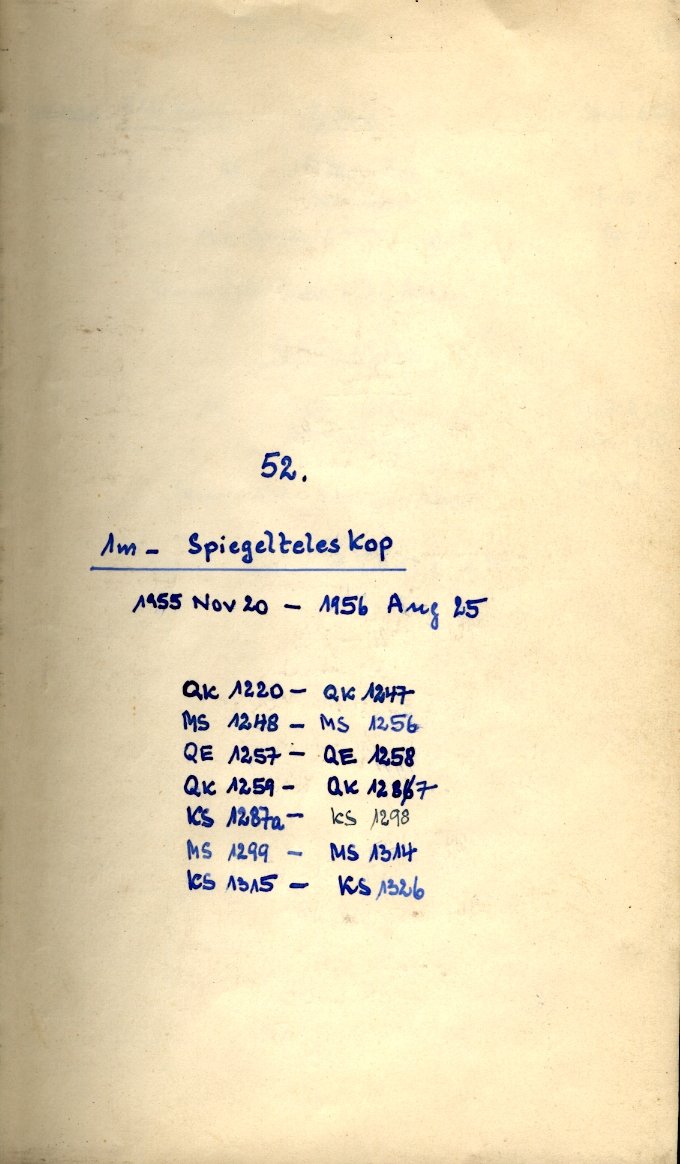 52.
1m - Spiegelteleskop
1955 Nov 20 - 1956 Aug 25
QK 1220 - QK 1247
MS 1248 - MS 1256
QE 1257 - QE 1258
QK 1259 - QK 1287
KS 1287a - KS 1298
MS 1299 - MS 1314
KS 1315 - KS 1326